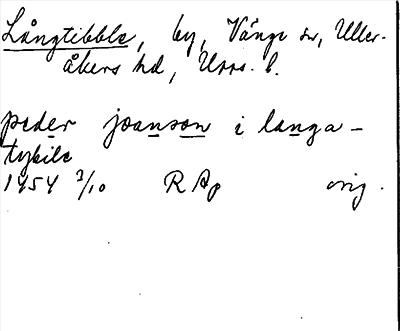 Långtibble, by, Vänge sn, Uller-
åkers hd, Upps. l.
peder joanson i langa-
tybile
1454 3/10 RAp orig.